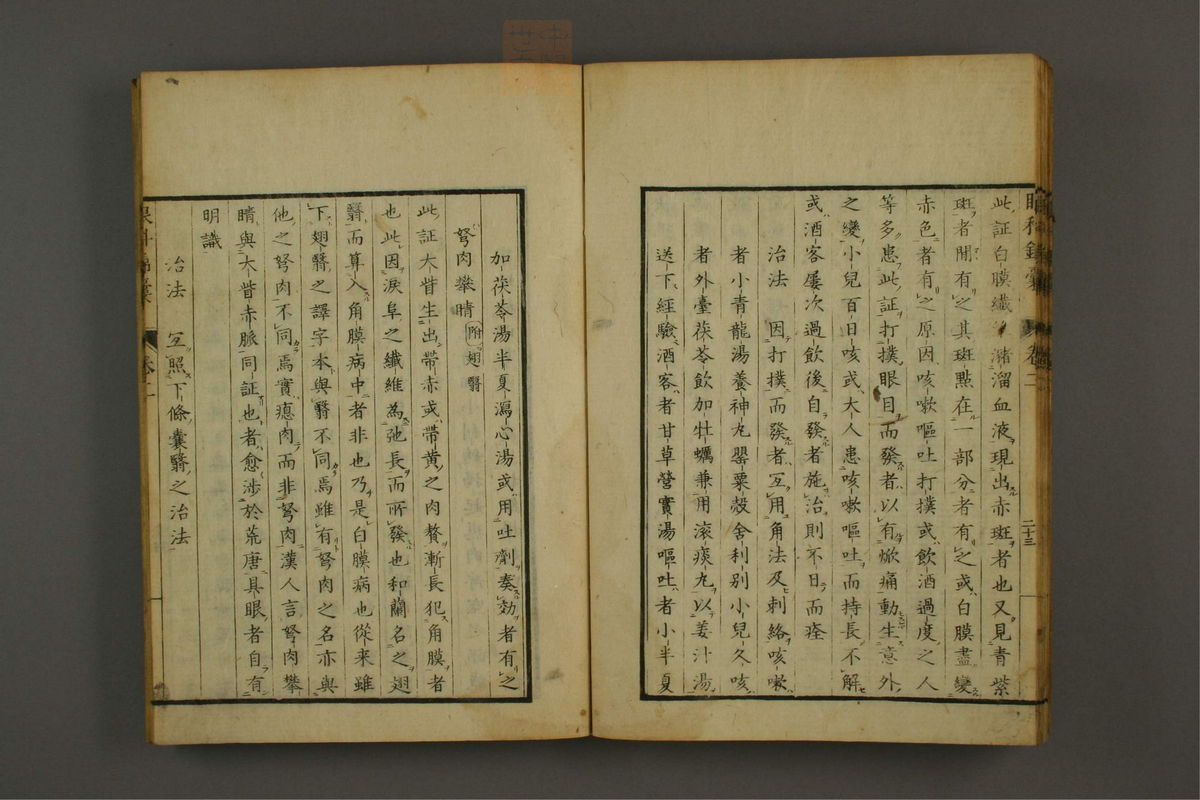 眼科錦囊 卷二 二十三
此証白膜纖 瀦溜血液現出赤斑者也又見青紫
斑者間有之其斑點在一部分者有之或白膜盡變
赤色者有之原因咳嗽嘔吐打撲或飲酒過度之人
等多患此証打撲眼目而發者以有焮痛動生意外
之變小兒百日咳或大人患咳嗽嘔吐而持長不解
或酒客屢次過飲後自發者施治則不日而痊
治法 因打撲而發者互用角法及刺絡咳嗽
者小青龍湯養神丸罌粟殼舍利別小兒久咳
者外臺茯苓飲加牡蠣兼用滾痰丸以姜汁湯
送下經驗酒客者甘草營實湯嘔吐者小半夏
加茯苓湯半夏瀉心湯或用吐劑奏効者有之
胬肉攀睛 附翅翳
此証大眥生出帶赤或帶黃之肉贅漸長犯角膜者
也此因淚阜之纖維為弛長而所發也和蘭名之翅
翳而算入角膜病中者非也乃是白膜病也從来雖
下翅翳之譯字本與翳不同焉雖有胬肉之名亦與
他之胬肉不同焉實瘜肉而非胬肉漢人言胬肉攀
睛與大眥赤脈同証也者愈涉於荒唐具眼者自有
明識
治法 互照下條囊翳之治法